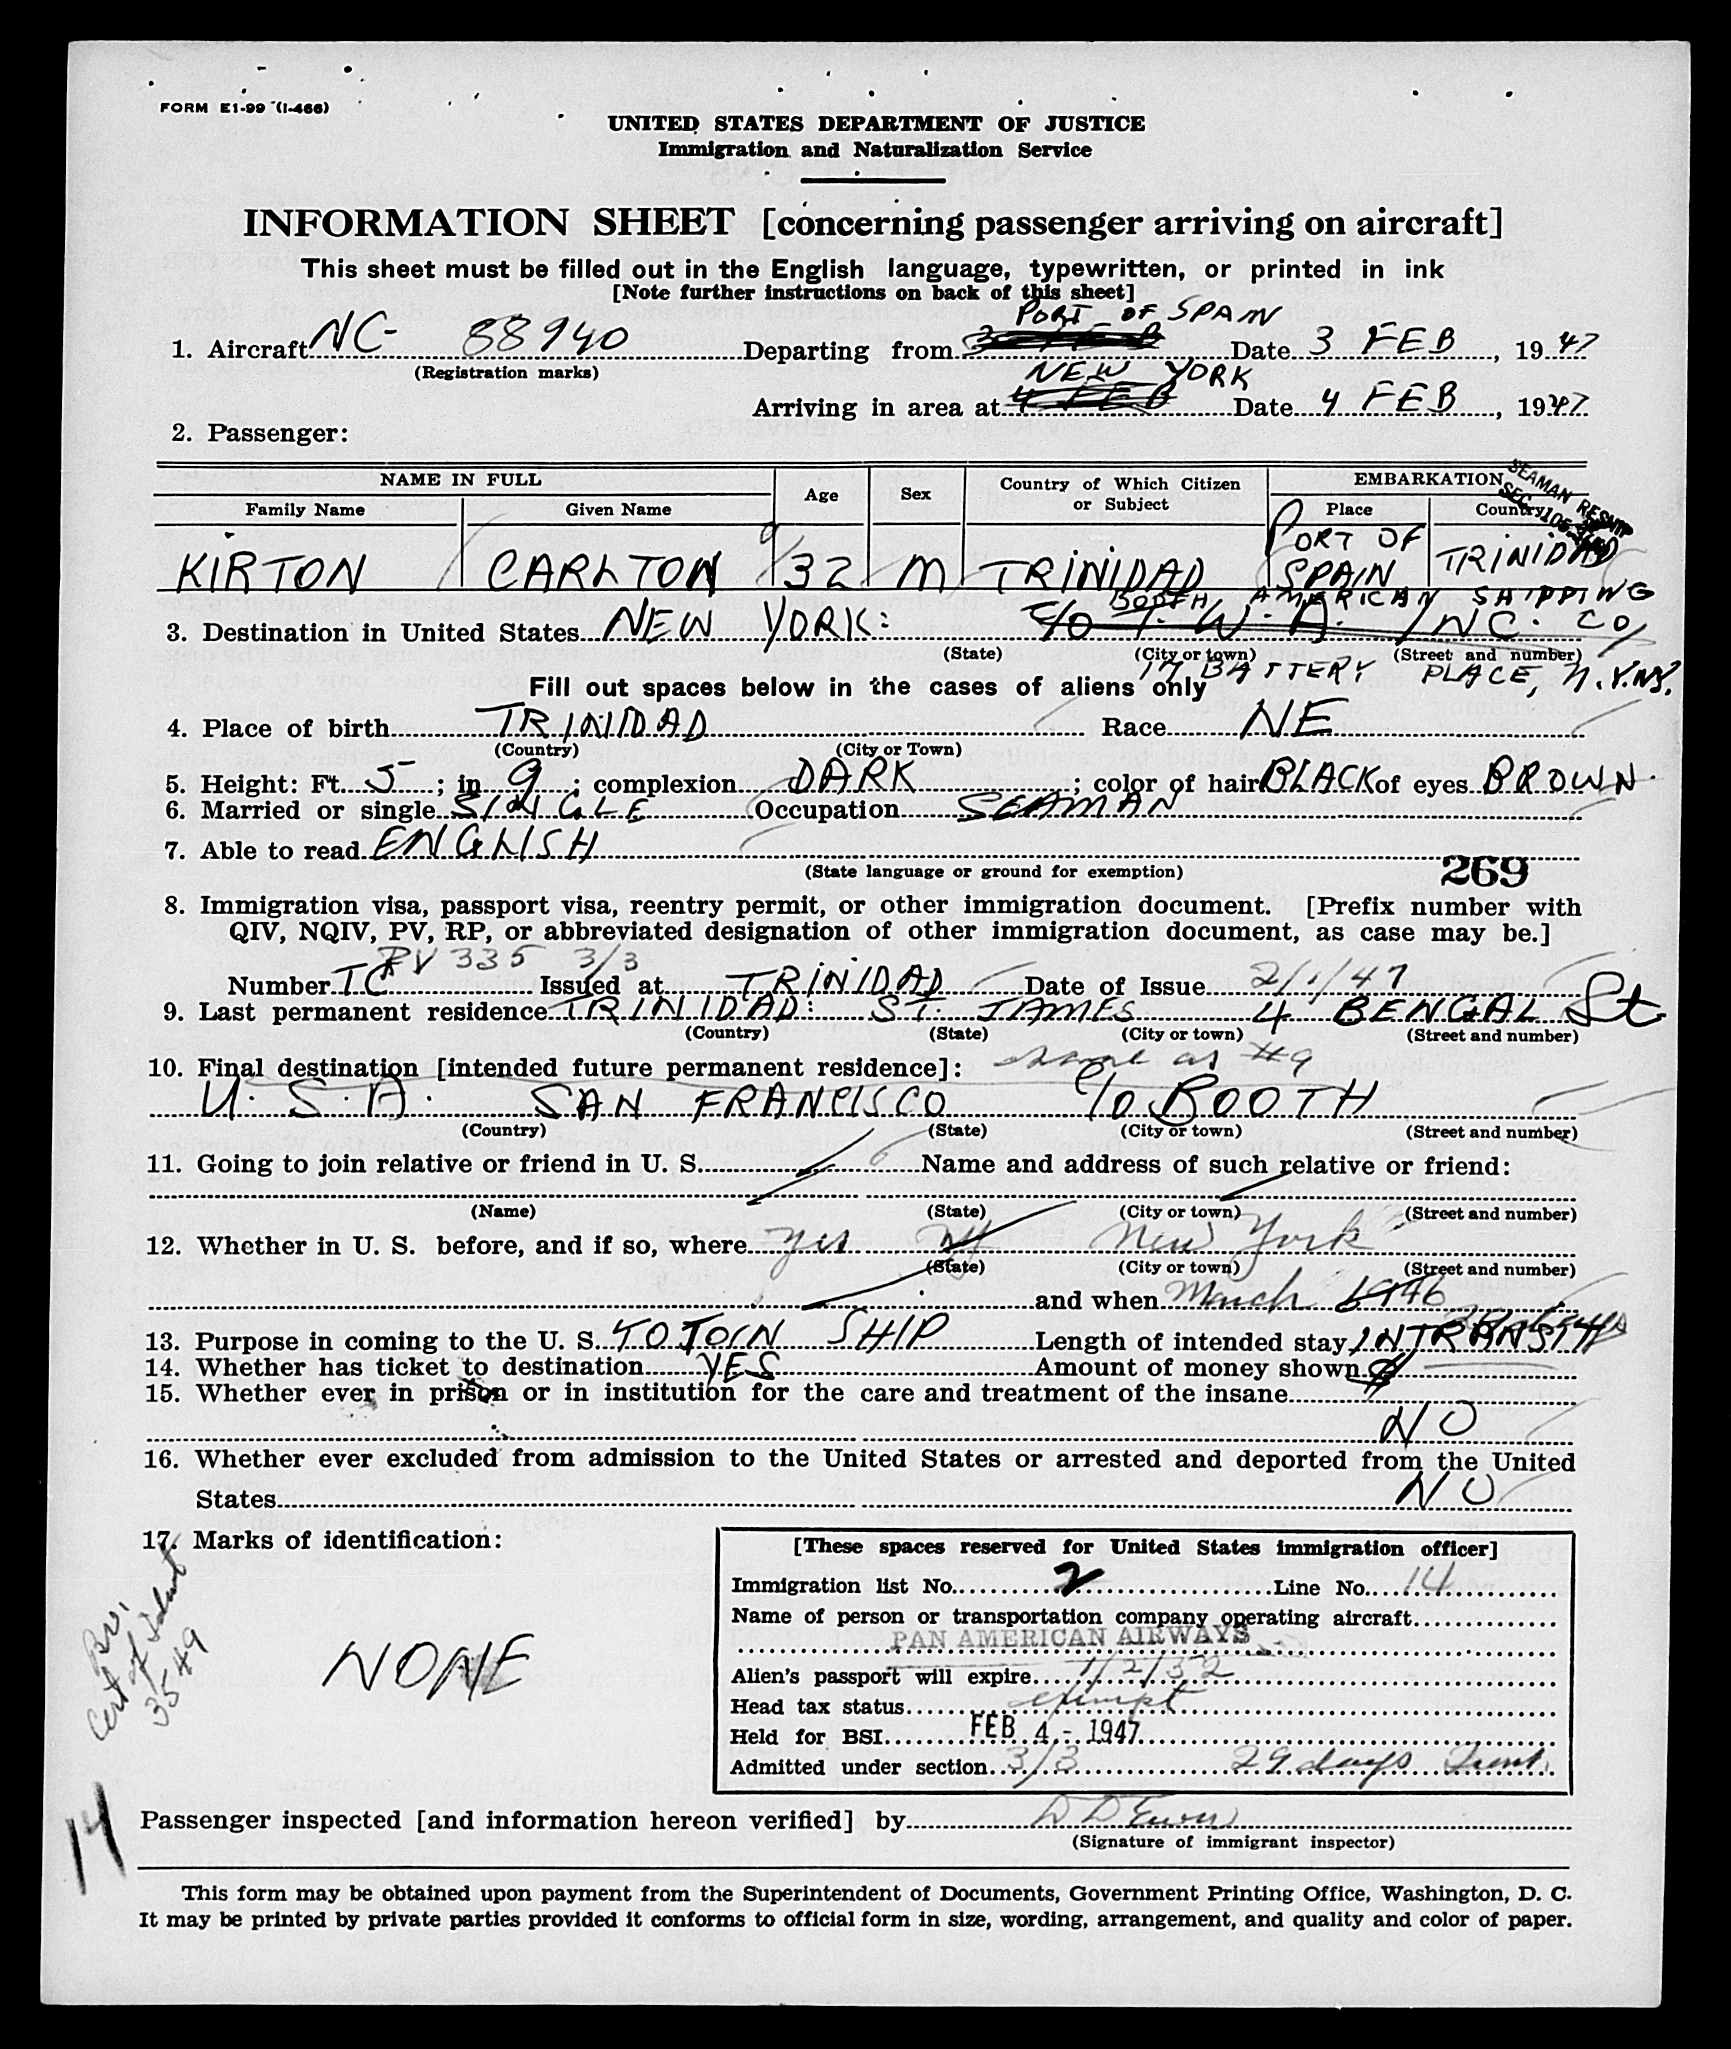 FORM E1-99 (I-466)
UNITED STATES DEPARTMENT OF JUSTICE
Immigration and Naturalization Service
INFORMATION SHEET [concerning passenger arriving on aircraft]
This sheet must be filled out in the English language, typewritten, or printed in ink
[Note further instructions on back of this sheet]
PORT OF SPAIN
1. Aircraft NC- 88940 Departing from 3 FEB Date 3 FEB, 1947
(Registration marks)
NEW YORK
Arriving in area at 4 FEB Date 4 FEB, 1947
2. Passenger:
NAME IN FULL Age Sex Country of Which Citizen or Subject EMBARKATION
Family Name Given Name Place Country
SEAMAN
KIRTON CARLTON 32 M TRINIDAD PORT OF SPAIN TRINIDAD
BOOTH AMERICAN SHIPPING
3. Destination in United States NEW YORK: C/O T. W. A. INC. CO
(State) (City or town) (Street and number)
17 BATTERY PLACE, N.Y. NY.
Fill out spaces below in the cases of aliens only
4. Place of birth TRINIDAD Race NE
(Country) (City or Town)
5. Height: Ft. 5; in 9; complexion DARK; color of hair BLACK of eyes BROWN
6. Married or single SINGLE Occupation SEAMAN
7. Able to read ENGLISH
(State language or ground for exemption)
269
8. Immigration visa, passport visa, reentry permit, or other immigration document. [Prefix number with
QIV, NQIV, PV, RP, or abbreviated designation of other immigration document, as case may be.]
PV 335 3/3
Number TC Issued at TRINIDAD Date of Issue 2/1/47
9. Last permanent residence TRINIDAD: ST. JAMES 4 BENGAL St
(Country) (State) (City or town) (Street and number)
10. Final destination [intended future permanent residence]: same as #9
U.S.A. SAN FRANCISCO C/O BOOTH
(Country) (State) (City or town) (Street and number)
11. Going to join relative or friend in U. S. Name and address of such relative or friend:
(Name) (State) (City or town) (Street and number)
12. Whether in U. S. before, and if so, where yes NY New York
(State) (City or town) (Street and number)
and when March 1946
13. Purpose in coming to the U. S. TO JOIN SHIP Length of intended stay INTRANSIT
14. Whether has ticket to destination YES Amount of money shown $
15. Whether ever in prison or in institution for the care and treatment of the insane
NO
16. Whether ever excluded from admission to the United States or arrested and deported from the United
States NO
17. Marks of identification:
NONE
Br.
Cert of Ident
3549
[These spaces reserved for United States immigration officer]
Immigration list No. 2 Line No. 14
Name of person or transportation company operating aircraft
PAN AMERICAN AIRWAYS
Alien's passport will expire 1/2/52
Head tax status exempt
Held for BSI FEB 4 - 1947
Admitted under section 3/3 29 days
14
Passenger inspected [and information hereon verified] by
(Signature of immigrant inspector)
This form may be obtained upon payment from the Superintendent of Documents, Government Printing Office, Washington, D. C.
It may be printed by private parties provided it conforms to official form in size, wording, arrangement, and quality and color of paper.